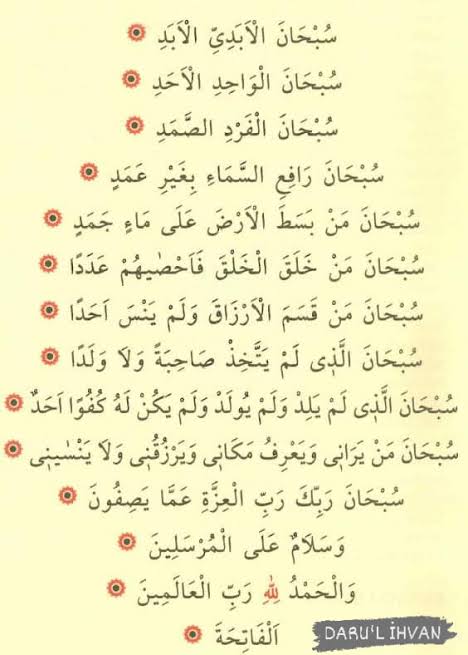 سُبْحَانَ الْاَبَدِيِّ الْاَبَدِ
سُبْحَانَ الْوَاحِدِ الْاَحَدِ
سُبْحَانَ الْفَرْدِ الصَّمَدِ
سُبْحَانَ رَافِعِ السَّمَاءِ بِغَيْرِ عَمَدٍ
سُبْحَانَ مَنْ بَسَطَ الْاَرْضَ عَلَى مَاءٍ جَمَدٍ
سُبْحَانَ مَنْ خَلَقَ الْخَلْقَ فَاَحْصٰيهُمْ عَدَدًا
سُبْحَانَ مَنْ قَسَمَ الْاَرْزَاقَ وَلَمْ يَنْسَ اَحَدًا
سُبْحَانَ الَّذِى لَمْ يَتَّخِذْ صَاحِبَةً وَلَا وَلَدًا
سُبْحَانَ الَّذِى لَمْ يَلِدْ وَلَمْ يُولَدْ وَلَمْ يَكُنْ لَهُ كُفُوًا اَحَدٌ
سُبْحَانَ مَنْ يَرَانِى وَيَعْرِفُ مَكَانِى وَيَرْزُقُنِى وَلَا يَنْسٰينِى
سُبْحَانَ رَبِّكَ رَبِّ الْعِزَّةِ عَمَّا يَصِفُونَ
وَسَلَامٌ عَلَى الْمُرْسَلِينَ
وَالْحَمْدُ لِلّٰهِ رَبِّ الْعَالَمِينَ
اَلْفَاتِحَةَ
DARU'L İHVAN